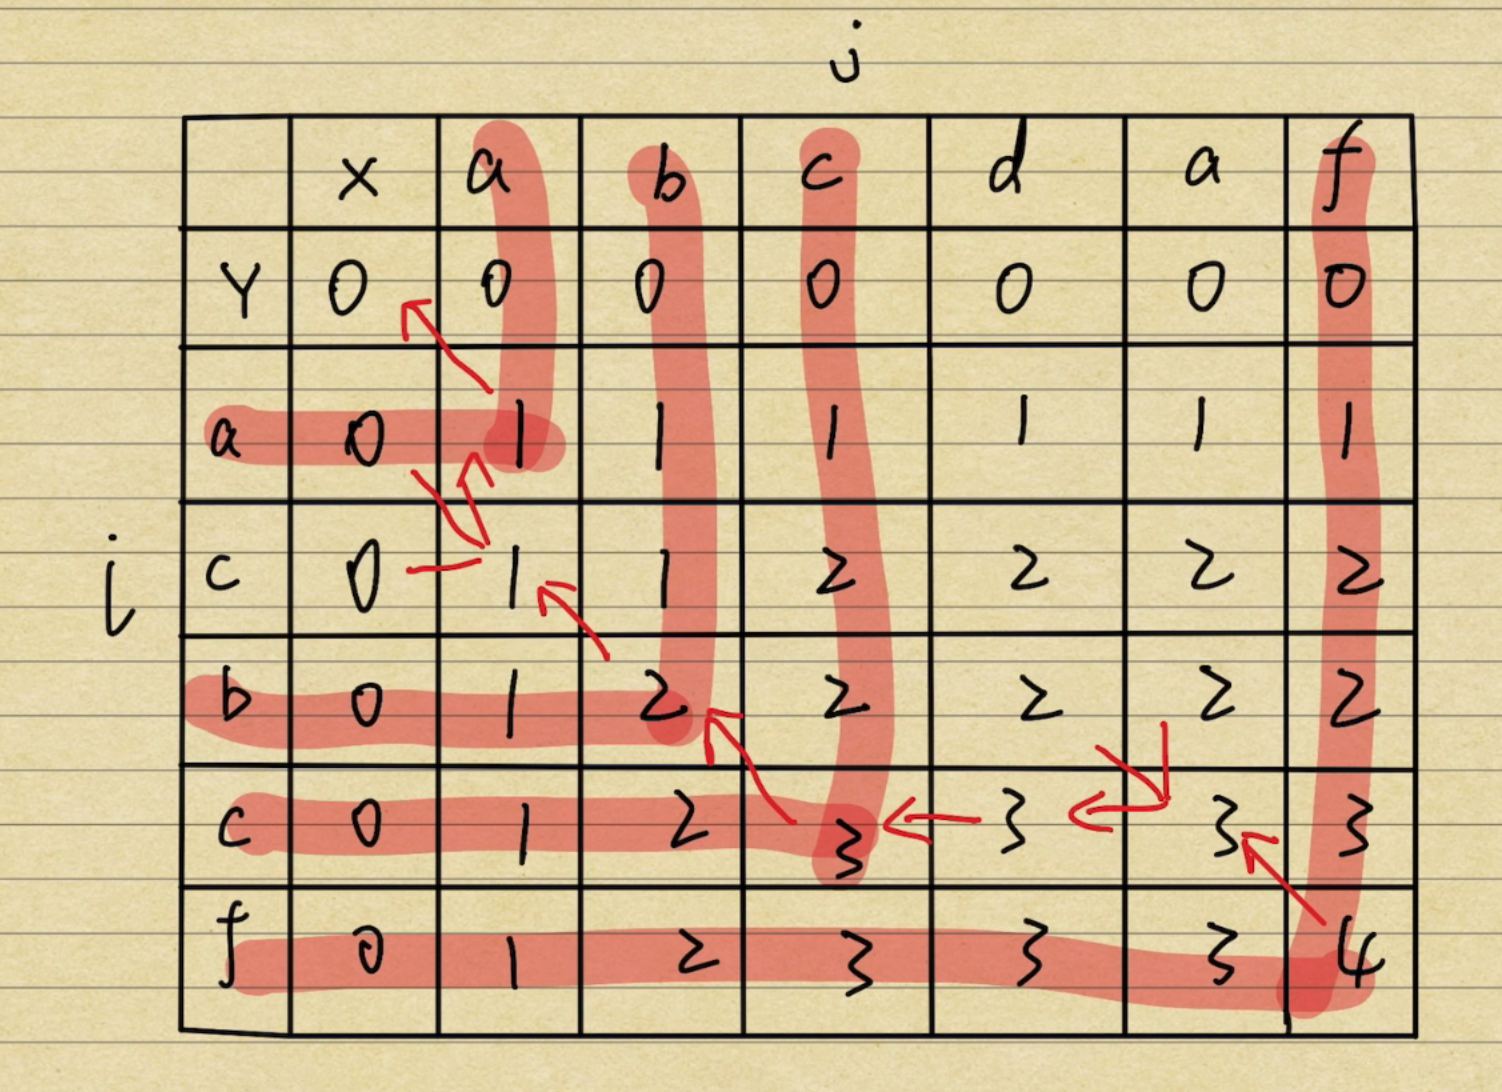 j
x a b c d a f
Y 0 0 0 0 0 0 0
a 0 1 1 1 1 1 1
i
c 0 1 1 2 2 2 2
b 0 1 2 2 2 2 2
c 0 1 2 3 3 3 3
f 0 1 2 3 3 3 4